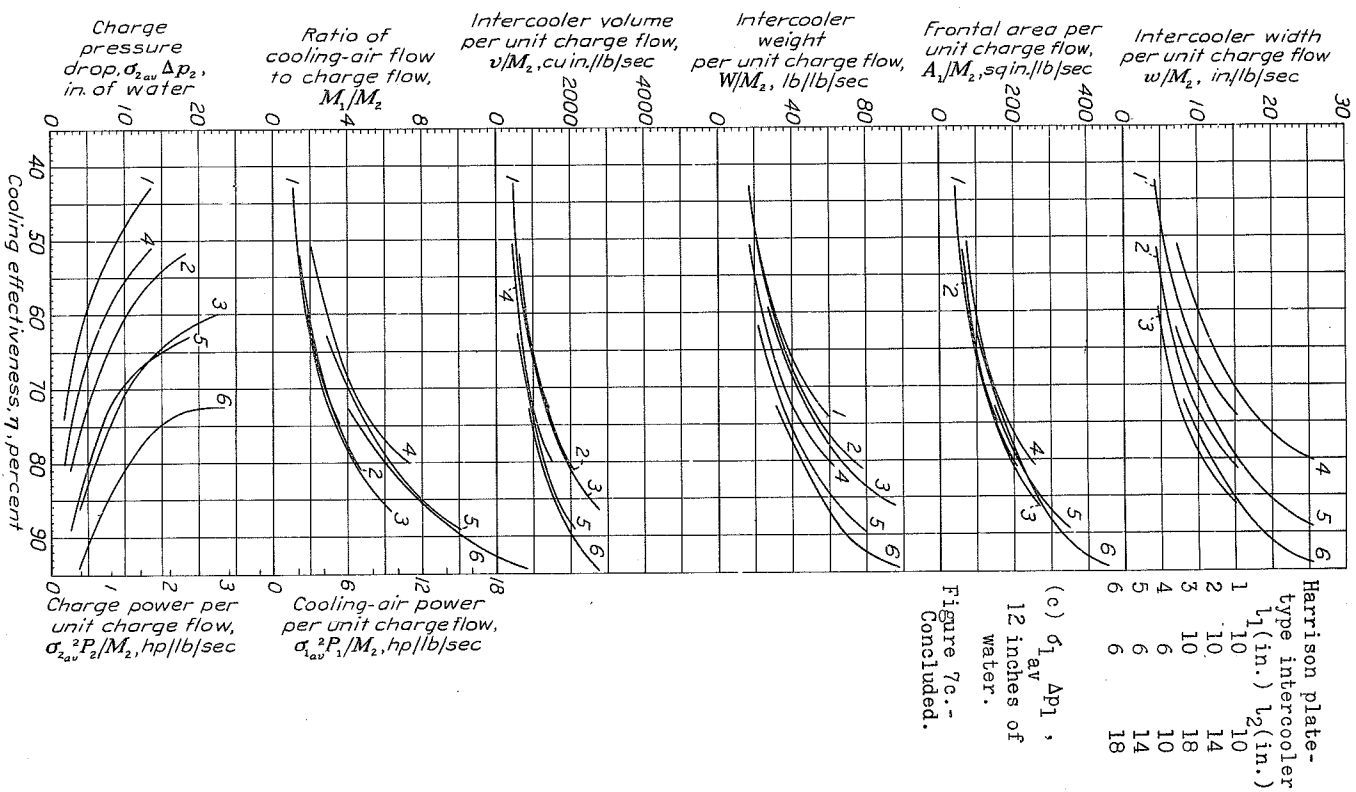 Charge
pressure
drop, σ2av Δp2,
in. of water
Ratio of
cooling-air flow
to charge flow,
M1/M2
Intercooler volume
per unit charge flow,
v/M2, cu in./lb/sec
Intercooler
weight
per unit charge flow,
W/M2, lb/lb/sec
Frontal area per
unit charge flow,
A1/M2, sq in./lb/sec
Intercooler width
per unit charge flow,
w/M2, in/lb/sec
0 10 20
0 4 8
0 2000 4000
0 40 80
0 200 400
0 10 20 30
40
50
60
70
80
90
Cooling effectiveness, η, percent
1 4 2 3 5 6
1 4 2 3 5 6
1 4 2 3 5 6
1 2 4 3 5 6
1 2 4 3 5 6
1 2 3 4 5 6
0 1 2 3
0 6 12 18
Charge power per
unit charge flow,
σ2av²P2/M2, hp/lb/sec
Cooling-air power
per unit charge flow,
σ1av²P1/M2, hp/lb/sec
Harrison plate-
type intercooler
l1(in.) l2(in.)
1 10 10
2 10 14
3 10 18
4 6 10
5 6 14
6 6 18
(c) σ1av Δp1 ,
12 inches of
water.
Figure 7c.-
Concluded.